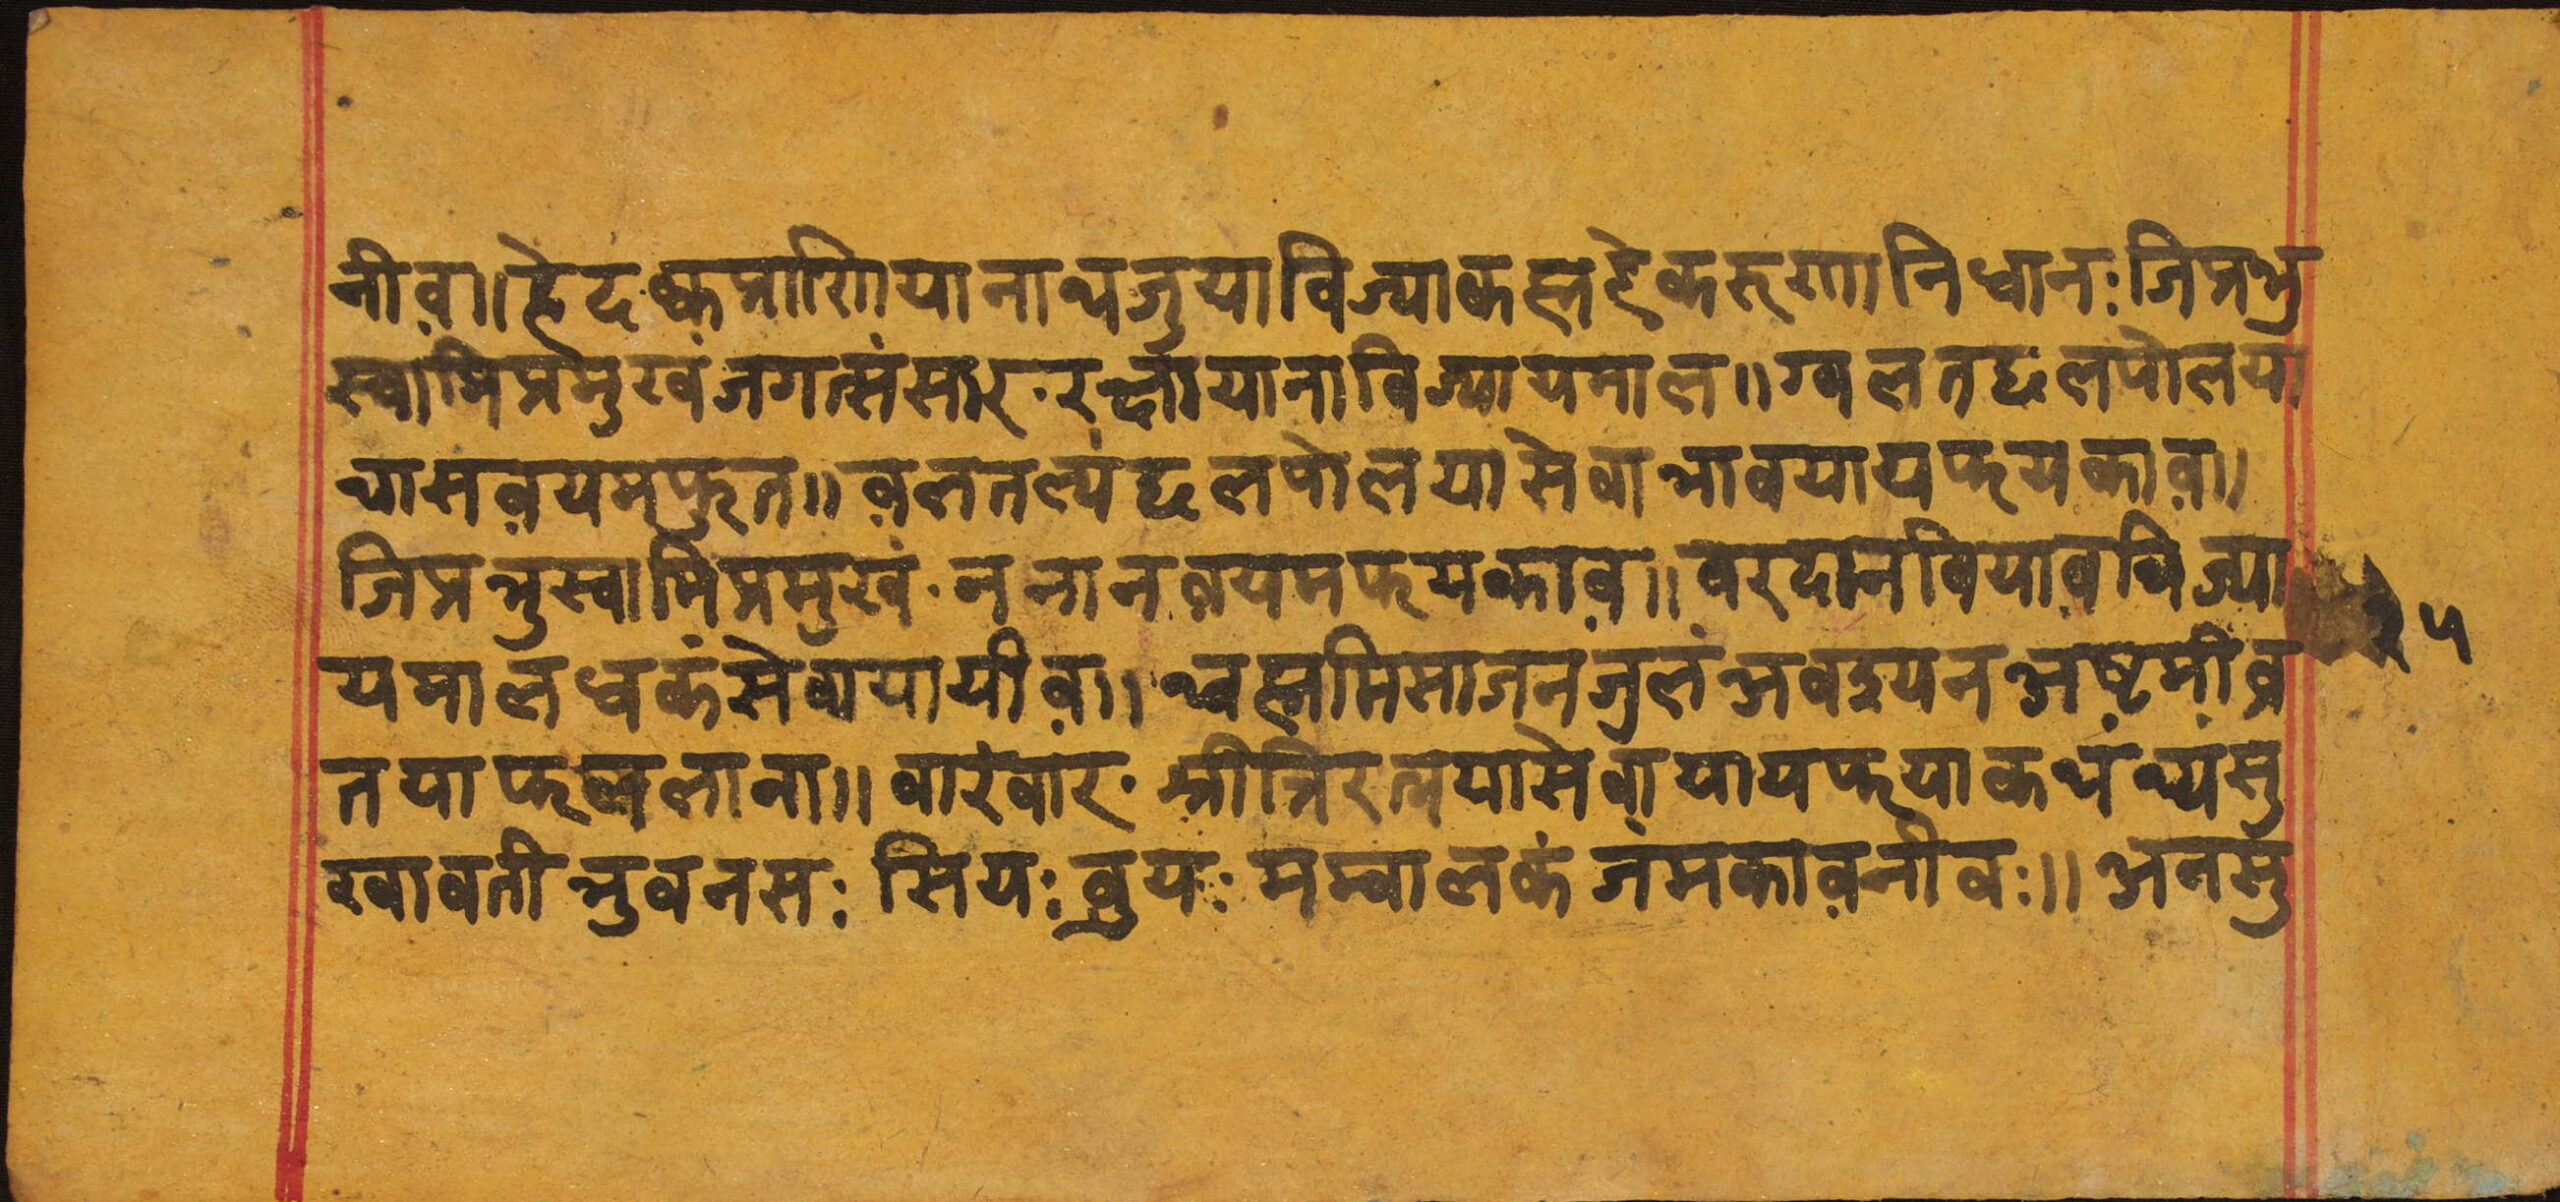 नीव़॥हेदक्वप्राणियानाथजुयाविज्याकह्महेकरुणानिधानःजिप्रभु
स्वामिप्रमुखंजगत्संसार·रक्षायानाविज्यायमाल॥ग्वलतछलपोलया
चासव़यमफुत॥व़लतल्यंछलपोलयासेवाभावयायफयकाव़॥
जिप्रभुस्वामिप्रमुखं·ननानव़यमफयकाव़॥वरदानवियाव़विज्या
यमालधकंसेवायायीव़॥थ्वह्ममिसाजनंजुलंअवइयनअष्टमीव्र
तयाफललाना॥वारंवार·श्रीत्रिरत्नयासेवायायफयाकथंथ्यंसु
खावतीभुवनसः सियःव्रुयःमम्वालकंजंमकाव़नीवः॥अनमु
२५